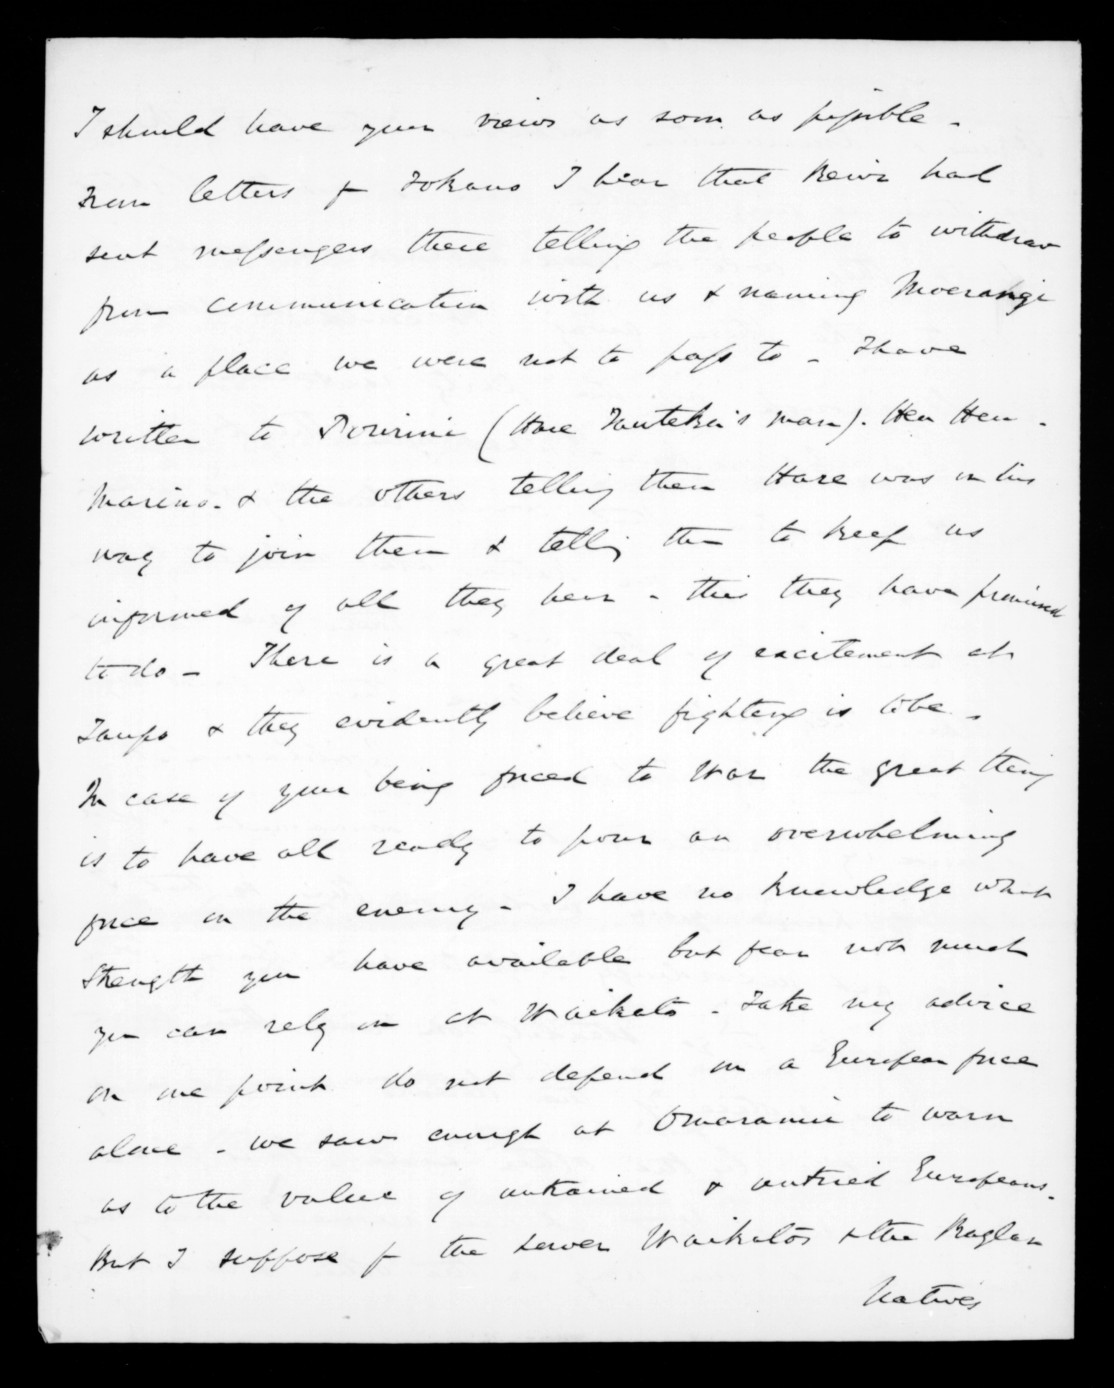 I should have your views as soon as possible -
From letters fr Tokano I hear that Rewi had
sent messengers there telling the people to withdraw
from communication with us & naming Moerangi
as a place we were not to pass to - I have
written to (Hare Tauteka's man). Heu Heu -
Marino. & the others telling them Hare was on his
way to join them & tellg them to keep us
informed of all they hear - this they have promised
to do - There is a great deal of excitement at
Taupo & they evidently believe fighting is to be -
In case of your being forced to War the great thing
is to have all ready to pour an overwhelming
force on the enemy - I have no knowledge what
strength you have available but fear not much
you can rely on at Waikato - Take my advice
on one point do not depend on a European force
alone - we saw enough at Omaranui to warn
as to the value of untrained & untried Europeans.
But I suppose fr the Lower Waikatos & the Raglan
Natives